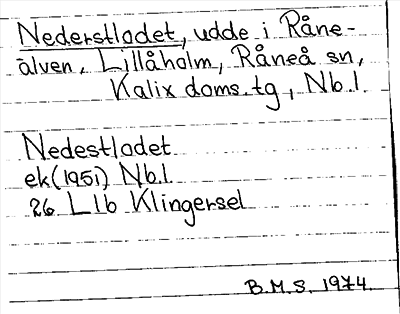 Nederstladet, udde i Råne-
älven, Lillåholm, Råneå sn,
Kalix doms.tg, Nb.l.
Nedestladet
ek(1951) Nb.l.
26 L1b Klingersel
B.M.S. 1974